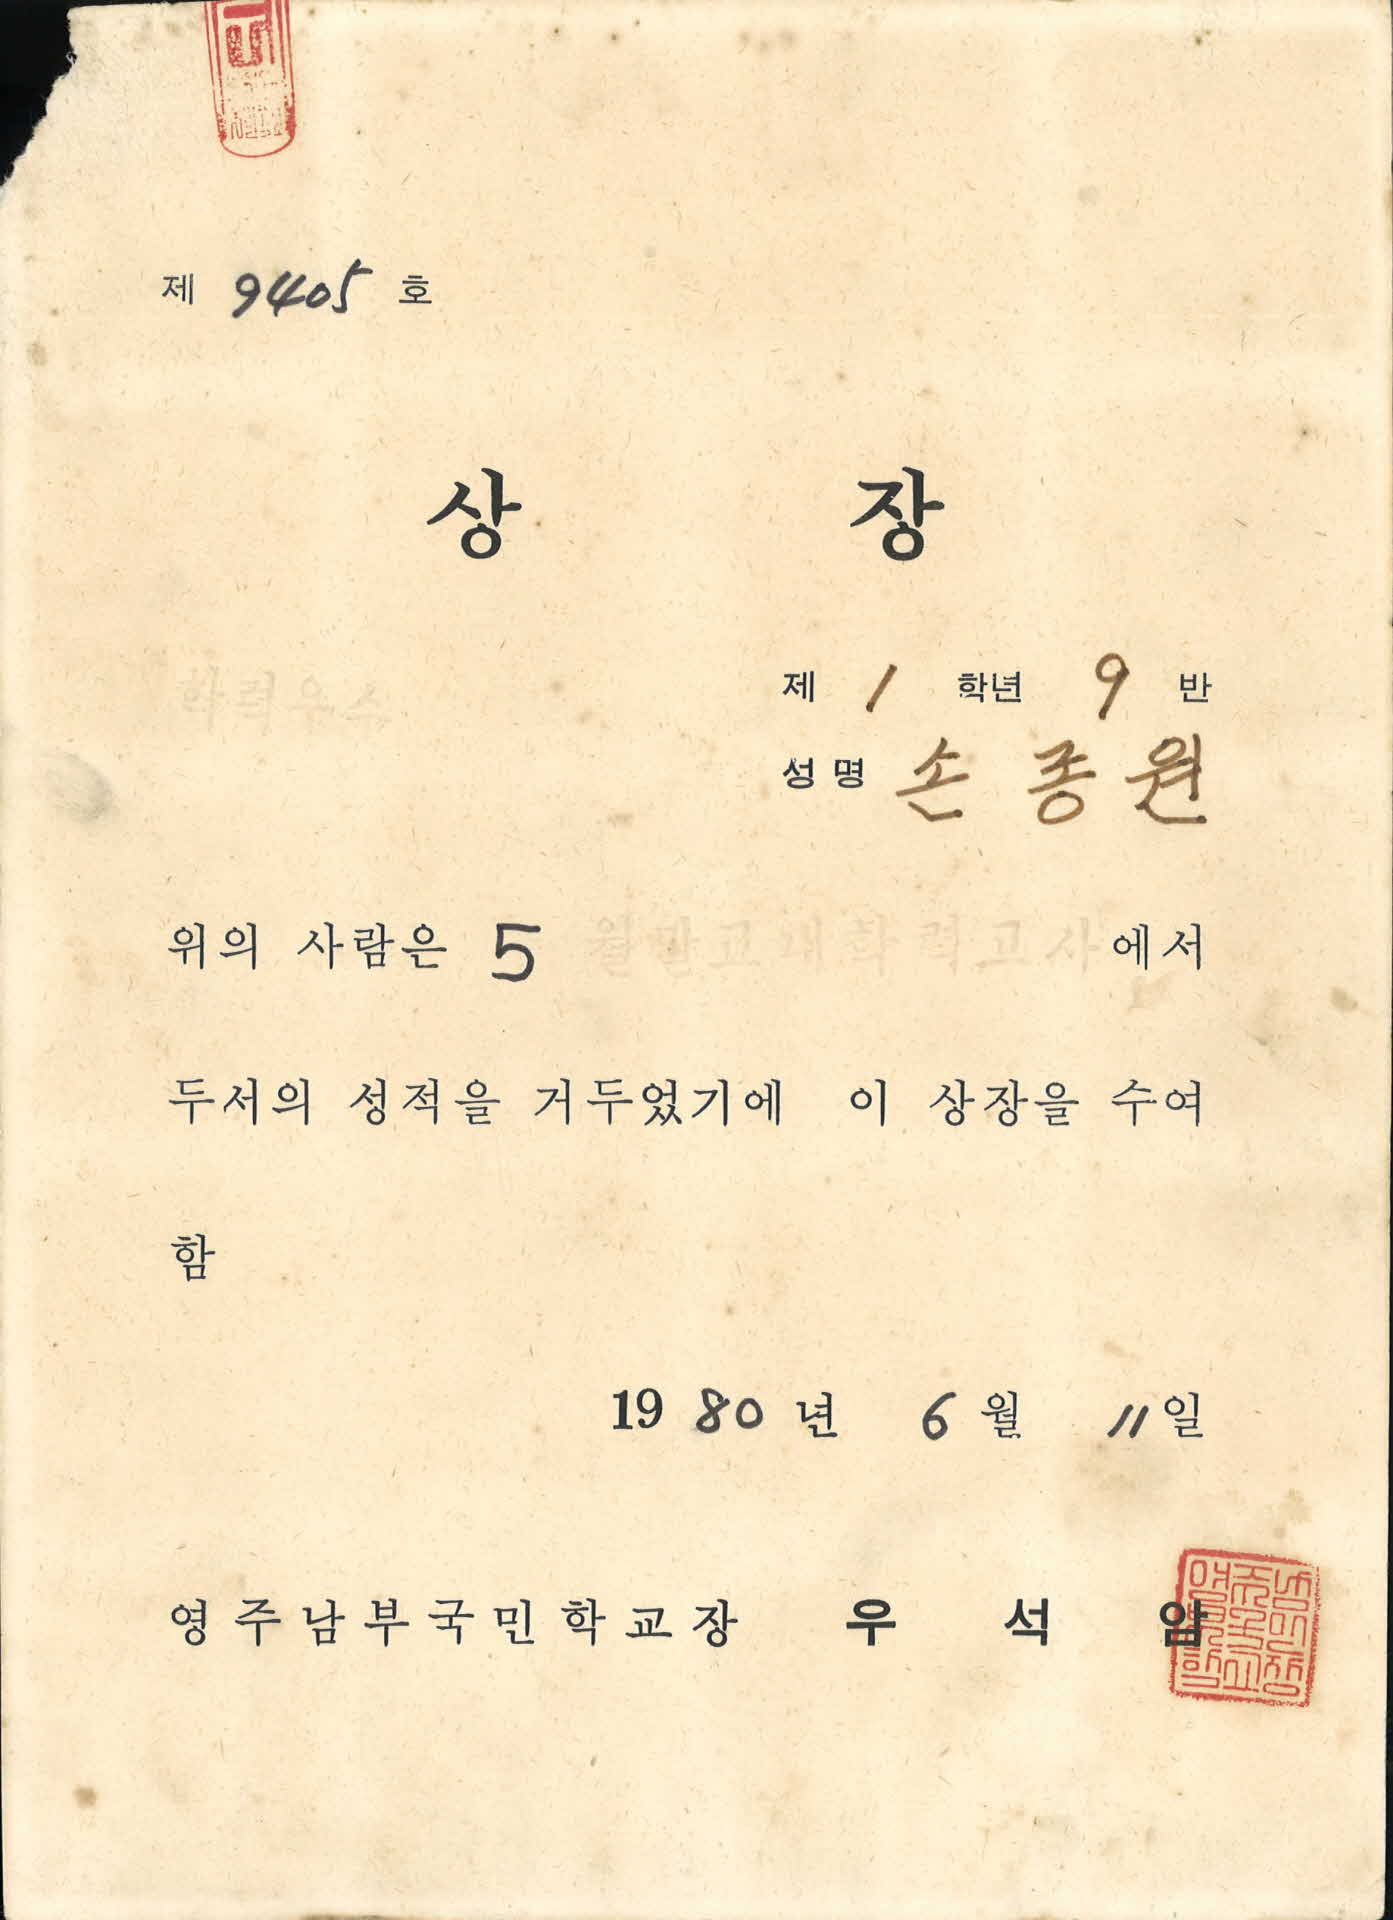 제 9405 호
상 장
학력우수
제 1 학년 9 반
성명 손종원
위의 사람은 5 월말교내학력고사 에서
두서의 성적을 거두었기에 이 상장을 수여
함
1980년 6월 11일
영주남부국민학교장 우 석 암